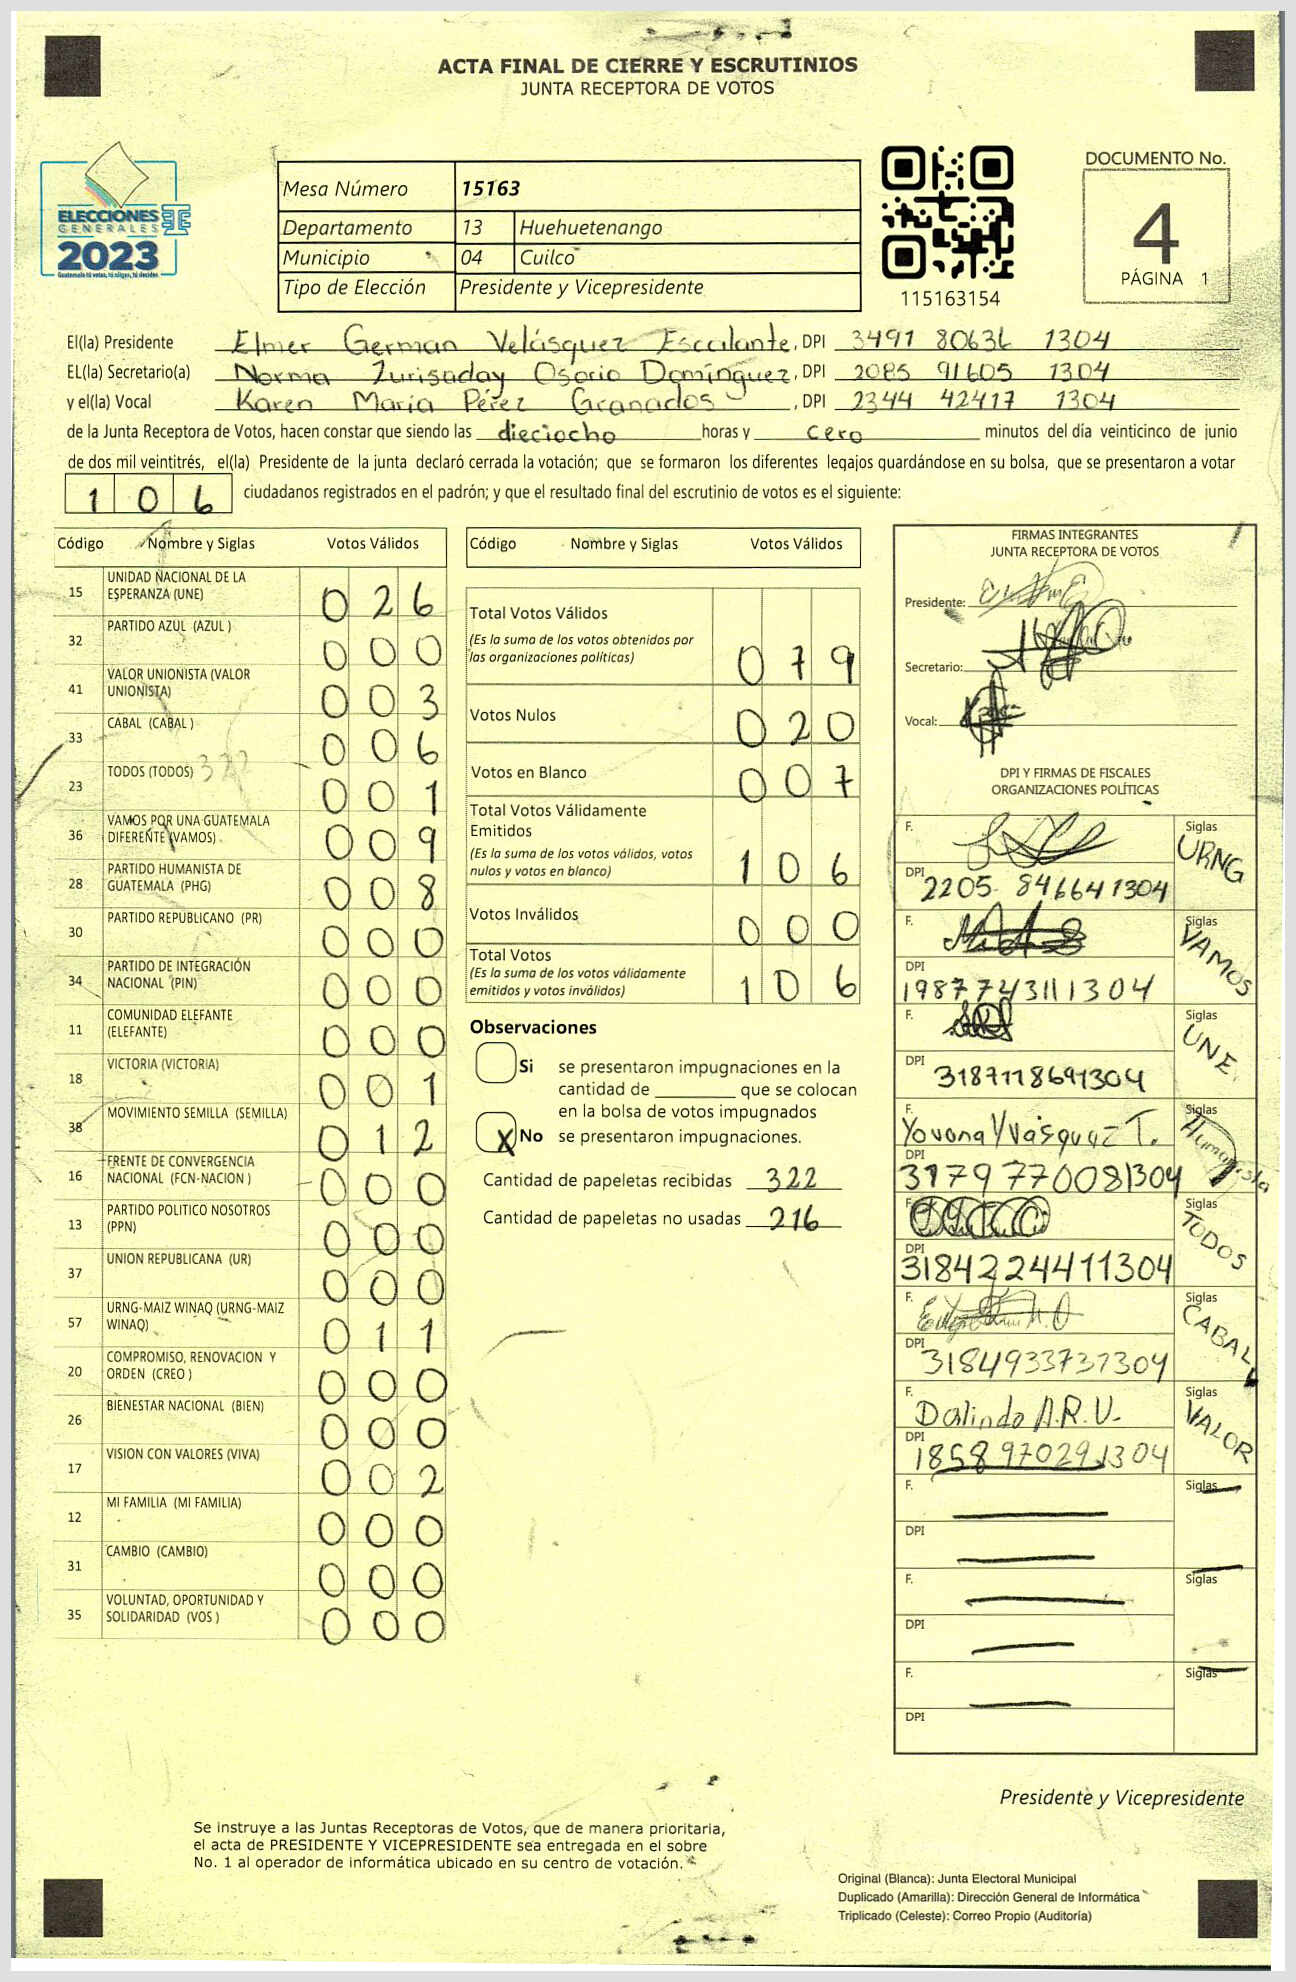 ACTA FINAL DE CIERRE Y ESCRUTINIOS
JUNTA RECEPTORA DE VOTOS
ELECCIONES
GENERALES
2023
Guatemala tú votas, tú eliges, tú decides
Mesa Número 15163
Departamento 13 Huehuetenango
Municipio 04 Cuilco
Tipo de Elección Presidente y Vicepresidente
115163154
DOCUMENTO No.
4
PÁGINA 1
El(la) Presidente Elmer German Velásquez Escalante, DPI 3491 80636 1304
EL(la) Secretario(a) Norma Zurisaday Osorio Domínguez, DPI 2085 91605 1304
y el(la) Vocal Karen María Pérez Granados, DPI 2344 42417 1304
de la Junta Receptora de Votos, hacen constar que siendo las dieciocho horas y cero minutos del día veinticinco de junio
de dos mil veintitrés, el(la) Presidente de la junta declaró cerrada la votación; que se formaron los diferentes legajos guardándose en su bolsa, que se presentaron a votar
106 ciudadanos registrados en el padrón; y que el resultado final del escrutinio de votos es el siguiente:
Código Nombre y Siglas Votos Válidos
15 UNIDAD NACIONAL DE LA
ESPERANZA (UNE) 026
32 PARTIDO AZUL (AZUL ) 000
41 VALOR UNIONISTA (VALOR
UNIONISTA) 003
33 CABAL (CABAL ) 006
23 TODOS (TODOS) 322 001
36 VAMOS POR UNA GUATEMALA
DIFERENTE (VAMOS) 009
28 PARTIDO HUMANISTA DE
GUATEMALA (PHG) 008
30 PARTIDO REPUBLICANO (PR) 000
34 PARTIDO DE INTEGRACIÓN
NACIONAL (PIN) 000
11 COMUNIDAD ELEFANTE
(ELEFANTE) 000
18 VICTORIA (VICTORIA) 001
38 MOVIMIENTO SEMILLA (SEMILLA) 012
16 FRENTE DE CONVERGENCIA
NACIONAL (FCN-NACION ) 000
13 PARTIDO POLITICO NOSOTROS
(PPN) 000
37 UNION REPUBLICANA (UR) 000
57 URNG-MAIZ WINAQ (URNG-MAIZ
WINAQ) 011
20 COMPROMISO, RENOVACION Y
ORDEN (CREO ) 000
26 BIENESTAR NACIONAL (BIEN) 000
17 VISION CON VALORES (VIVA) 002
12 MI FAMILIA (MI FAMILIA) 000
31 CAMBIO (CAMBIO) 000
35 VOLUNTAD, OPORTUNIDAD Y
SOLIDARIDAD (VOS ) 000
Código Nombre y Siglas Votos Válidos
Total Votos Válidos
(Es la suma de los votos obtenidos por
las organizaciones políticas) 079
Votos Nulos 020
Votos en Blanco 007
Total Votos Válidamente
Emitidos
(Es la suma de los votos válidos, votos
nulos y votos en blanco) 106
Votos Inválidos 000
Total Votos
(Es la suma de los votos válidamente
emitidos y votos inválidos) 106
Observaciones
Si se presentaron impugnaciones en la
cantidad de ________ que se colocan
en la bolsa de votos impugnados
X No se presentaron impugnaciones.
Cantidad de papeletas recibidas 322
Cantidad de papeletas no usadas 216
FIRMAS INTEGRANTES
JUNTA RECEPTORA DE VOTOS
Presidente:
Secretario:
Vocal:
DPI Y FIRMAS DE FISCALES
ORGANIZACIONES POLÍTICAS
F. Siglas URNG
DPI 2205 846641304
F. Siglas VAMOS
DPI 1987743111304
F. Siglas UNE
DPI 3187118691304
F. Siglas Humanista
DPI 3179770081304
F. Siglas TODOS
DPI 3184224411304
F. Siglas CABAL
DPI 3184933737304
F. Dalindo A.R.V. Siglas VALOR
DPI 1858970291304
F. Siglas
DPI
F. Siglas
DPI
F. Siglas
DPI
Presidente y Vicepresidente
Se instruye a las Juntas Receptoras de Votos, que de manera prioritaria,
el acta de PRESIDENTE Y VICEPRESIDENTE sea entregada en el sobre
No. 1 al operador de informática ubicado en su centro de votación.
Original (Blanca): Junta Electoral Municipal
Duplicado (Amarilla): Dirección General de Informática
Triplicado (Celeste): Correo Propio (Auditoría)